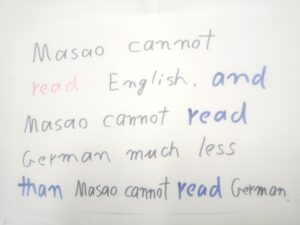 Masao cannot
read English, and
Masao cannot read
German much less
than Masao cannot read German.